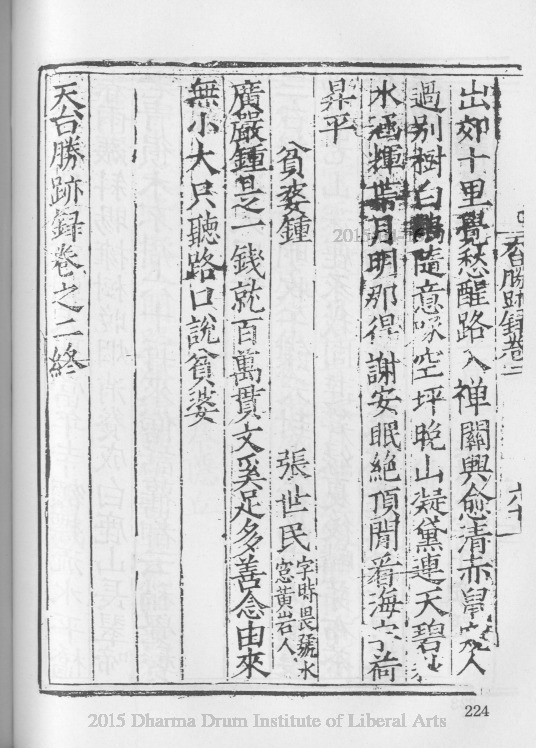 台勝跡錄卷二
六十
出郊十里覺愁醒路入禪關興愈清赤鼻人
過別樹白鵶隨意啄空坪晚山凝黛連天碧
水涵輝葉月明那得謝安眠絕頂閒看海宇荷
昇平
貧婆鍾
張世民字時畏號水窓黃岩人
廣嚴鍾是一錢就百萬貫文奚足多善念由來
無小大只聽路口說貧婆
天台勝跡錄卷之二終
2015 Dharma Drum Institute of Liberal Arts
224